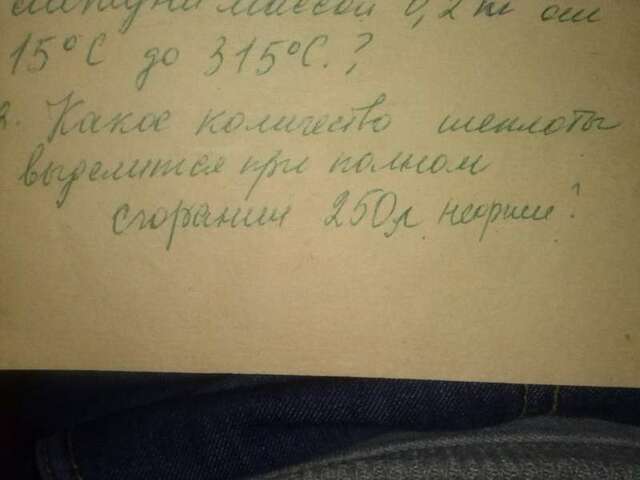 массой 0,2 кг от
15°С до 315°С.?
2. Какое количество теплоты
выделится при полном
сгорании 250л нефти?